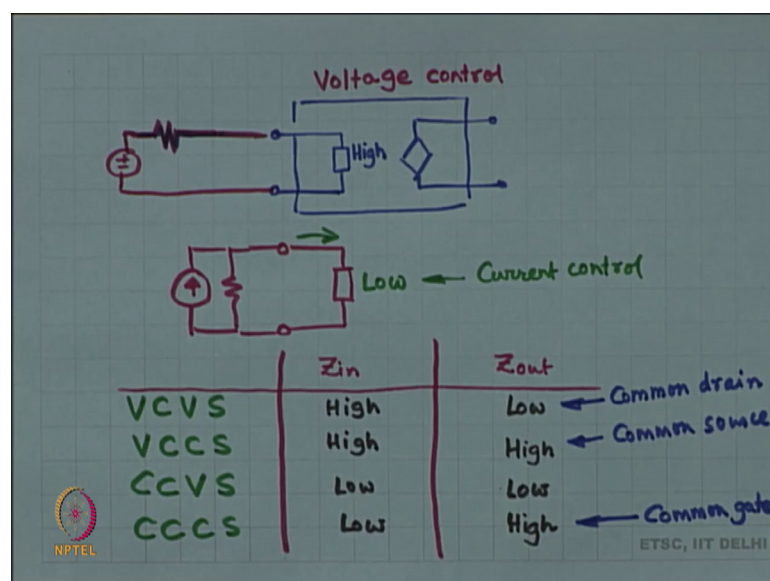 Voltage control
High
Low ← Current control
Zin Zout
VCVS High Low ← Common drain
VCCS High High ← Common source
CCVS Low Low
CCCS Low High ← Common gate
NPTEL
ETSC, IIT DELHI